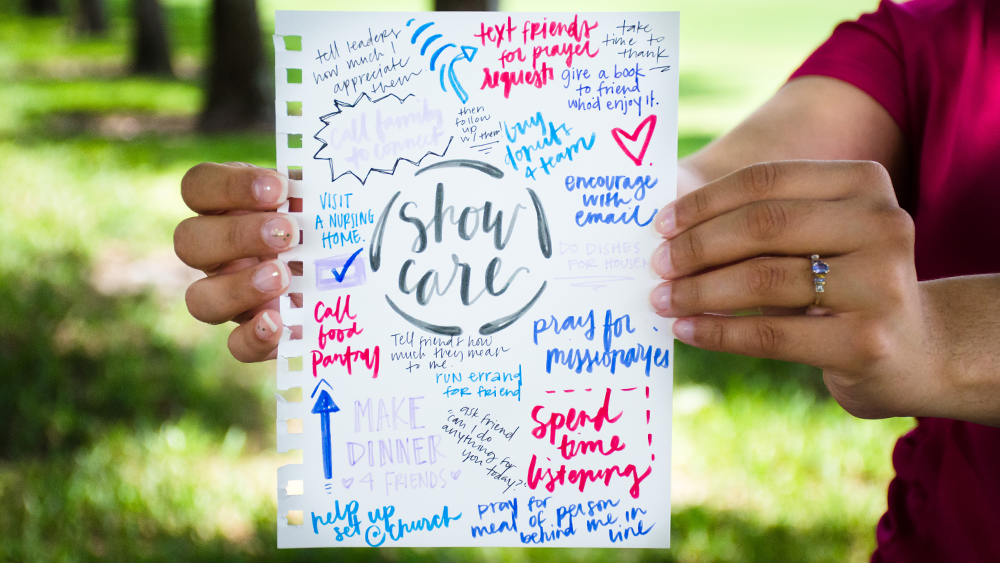 tell leaders
how much I
appreciate
them
text friends
for prayer
requests
take
time to
thank
give a book
to friend
who'd enjoy it.
call family
to connect
then
follow
up
w/ them!
buy
donuts
4 team
encourage
with
email
VISIT
A NURSING
HOME.
show
care
DO DISHES
FOR HOUSE
call
food
pantry
Tell friends how
much they mean
to me.
pray for
missionaries
run errand
for friend
MAKE
DINNER
4 FRIENDS
ask friend
"can I do
anything for
you today?"
spend
time
listening
help set up
@ church
pray for
meal of person
behind me in
line